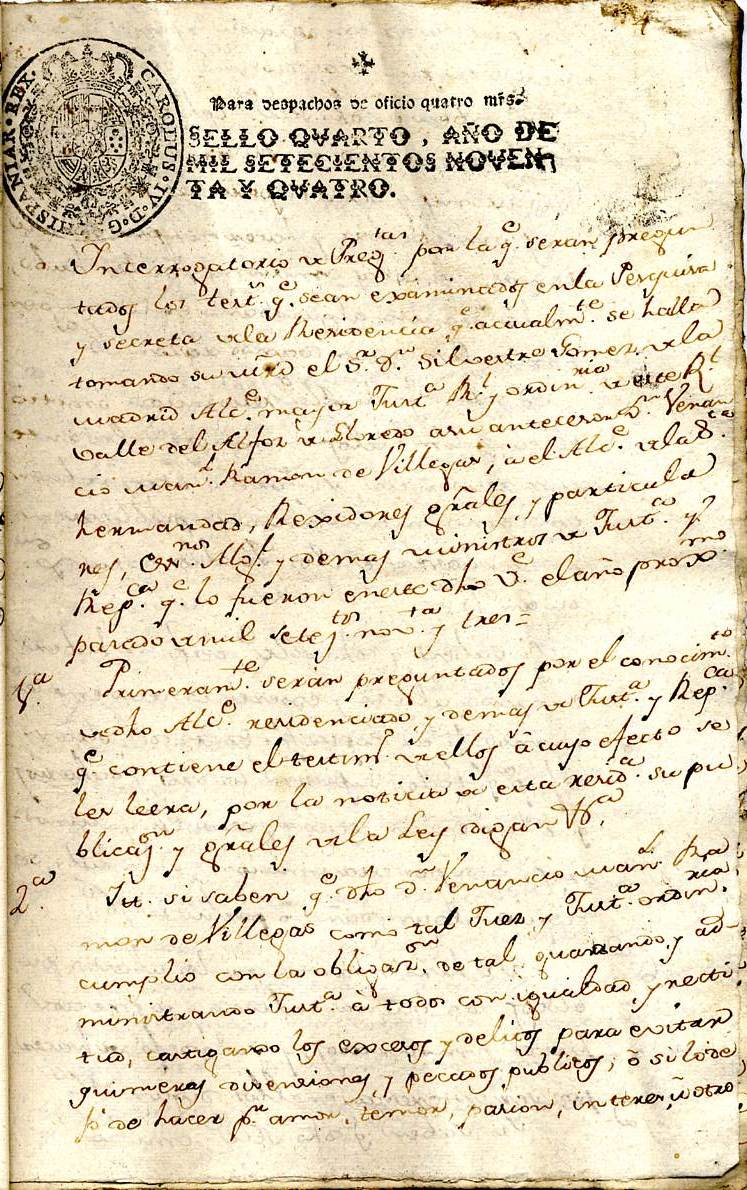 CAROLUS IV D G HISPANIAR REX
Para despachos de oficio quatro mrs.
SELLO QVARTO, AÑO DE
MIL SETECIENTOS NOVEN
TA Y QVATRO.
Interrogatorio de Preg.tas por la q.e seran pregun
tados los test.s q.e sean examinados en la Pesquisa
y secreta de la Residencia q.e actualm.te se halla
tomando su mrd el S.r D.n Silvestre Gomez de la
Madrid Alc.e mayor Just.a R.l y ordin.ria de este R.l
Valle del Alfoz de Lloredo a su antecesor D.n Venan
cio Man.l Ramon de Villegas, à el Alc.e de la S.ta
hermandad, Rexidores grãles y particula
res, ess.nos Alg.s y demas ministros de Just.a y
Rep.ca q.e lo fueron en este dho V.e el año prox.mo
pasado de mil setez.tos nov.ta y tres=
1.a Primeram.te seran preguntados por el conocim.to
de dho Alc.e residenciado y demas de Just.a y Rep.ca
q.e contiene el testim.o de ellos à cuyo efecto se
les leera, por la noticia de esta resid.a su pu
blicaz.on y grãles de la Ley digan
2.a Itt. si saben q.e dho D.n Venancio Man.l Ra
mon de Villegas como tal Juez y Just.a ordin.ria
cumplio con la obligaz.on de tal guardando y ad-
ministrando Just.a à todos con igualdad y recti
tud, castigando los excesos y delitos para evitar
quimeras disensiones y pecados publicos; ò si lo de
jò de hacer p.r amor, temor, pasion, interes, ù otro